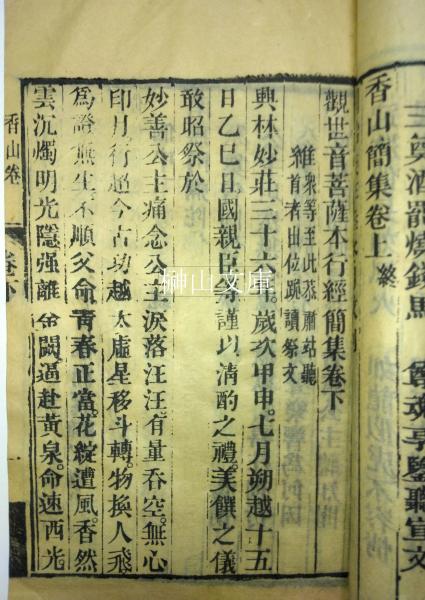 三奠酒罷燒錢馬
香山簡集卷上終
觀世音菩薩本行經簡集卷下
衆等至此恭肅站聽
維首者出位跪讀祭文
興林妙莊三十六年歲次甲申七月朔越十五
日乙巳日國親臣等謹以清酌之禮美饌之儀
敢昭祭於
妙善公主痛念公主淚落汪汪有量吞空無心
印月行超今古功越太虛星移斗轉物換人飛
爲證無生不順父命青春正當花綻遭風香然
雲沉燭明光隱强離金闕逼赴黃泉命速西光
香山卷
卷下
榊山文庫